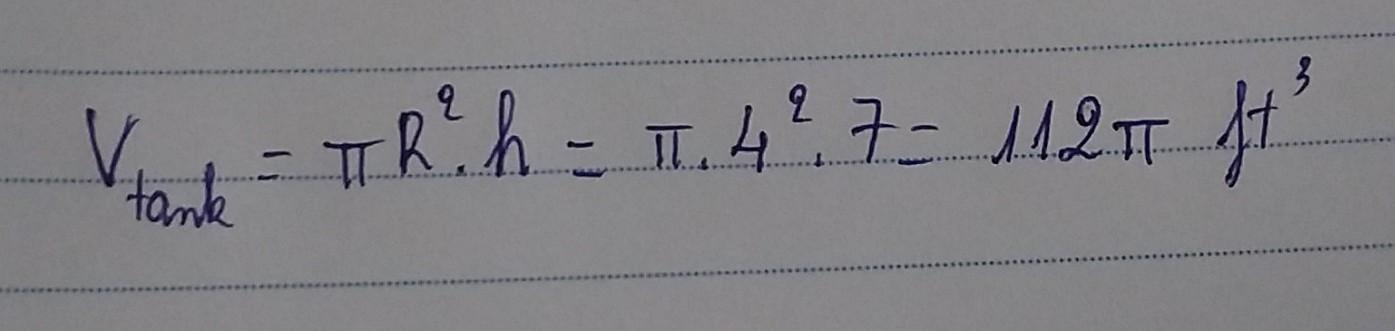 V_tank = πR². h = π. 4². 7 = 112π ft³